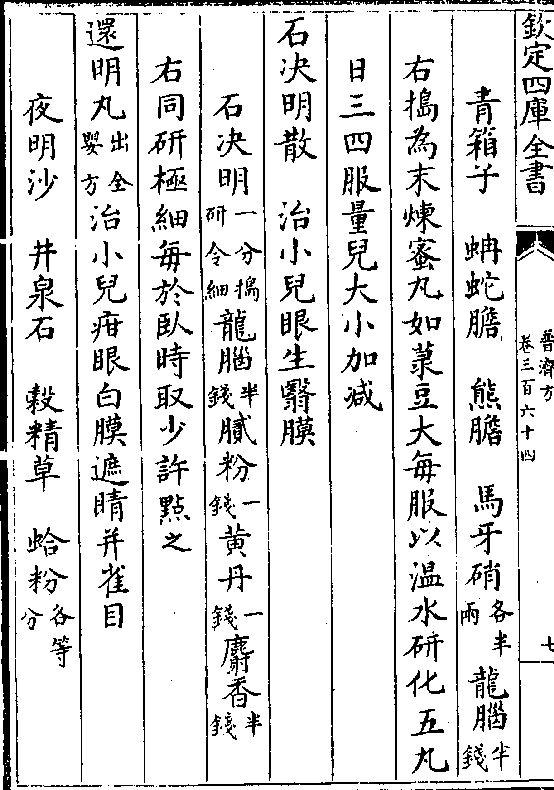 欽定四庫全書
普濟方
卷三百六十四
七
青箱子 蚺蛇膽 熊膽 馬牙硝各半兩 龍腦半錢
右搗為末煉蜜丸如菉豆大每服以溫水研化五丸
日三四服量兒大小加減
石决明散 治小兒眼生翳膜
石决明一分搗研令細 龍腦半錢 膩粉一錢 黃丹一錢 麝香半錢
右同研極細每於臥時取少許點之
還明丸出全嬰方 治小兒疳眼白膜遮睛并雀目
夜明沙 井泉石 穀精草 蛤粉各等分